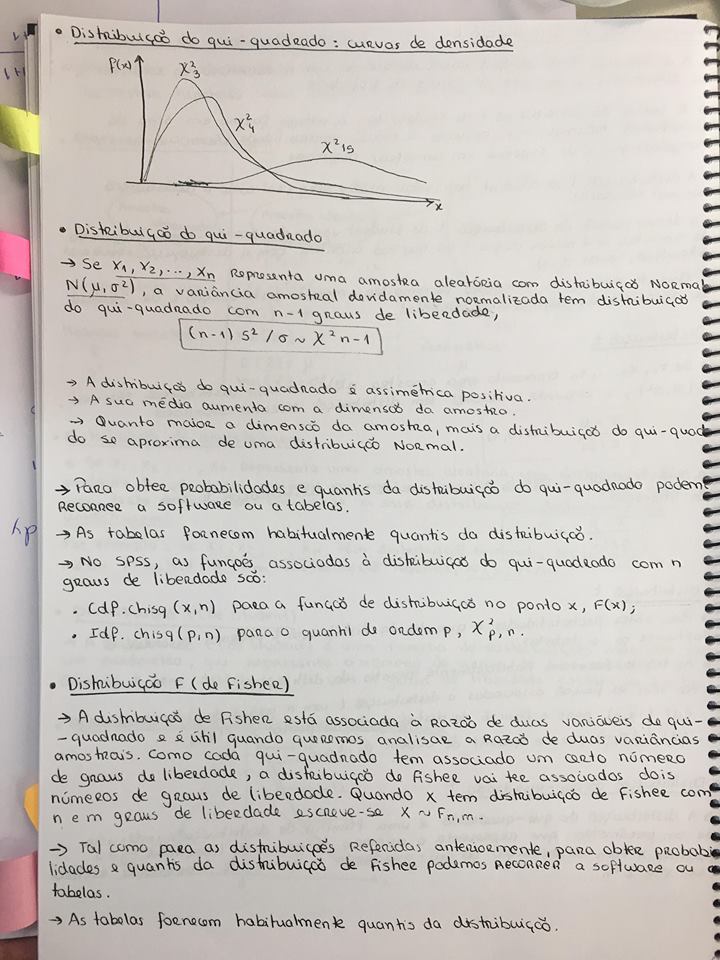 • Distribuição do qui-quadrado: curvas de densidade
f(x)
χ²3
χ²4
χ²15
x
• Distribuição do qui-quadrado
→ Se X1, X2, ..., Xn representa uma amostra aleatória com distribuição Normal
N(μ, σ²), a variância amostral devidamente normalizada tem distribuição
do qui-quadrado com n-1 graus de liberdade,
(n-1) S² / σ ~ χ² n-1
→ A distribuição do qui-quadrado é assimétrica positiva.
→ A sua média aumenta com a dimensão da amostra.
→ Quanto maior a dimensão da amostra, mais a distribuição do qui-quad
do se aproxima de uma distribuição Normal.
→ Para obter probabilidades e quantis da distribuição do qui-quadrado podem
recorrer a software ou a tabelas.
→ As tabelas fornecem habitualmente quantis da distribuição.
→ No SPSS, as funções associadas à distribuição do qui-quadrado com n
graus de liberdade são:
• Cdf.chisq (x,n) para a função de distribuição no ponto x, F(x);
• Idf.chisq (p,n) para o quantil de ordem p, χ²p,n.
• Distribuição F (de Fisher)
→ A distribuição de Fisher está associada à razão de duas variáveis de qui-
-quadrado e é útil quando queremos analisar a razão de duas variâncias
amostrais. Como cada qui-quadrado tem associado um certo número
de graus de liberdade, a distribuição de Fisher vai ter associados dois
números de graus de liberdade. Quando X tem distribuição de Fisher com
n e m graus de liberdade escreve-se X ~ Fn,m.
→ Tal como para as distribuições referidas anteriormente, para obter probabi
lidades e quantis da distribuição de Fisher podemos recorrer a software ou a
tabelas.
→ As tabelas fornecem habitualmente quantis da distribuição.